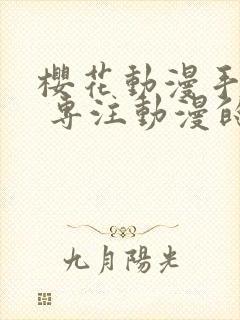 櫻花動漫手
專注動漫的
九月陽光